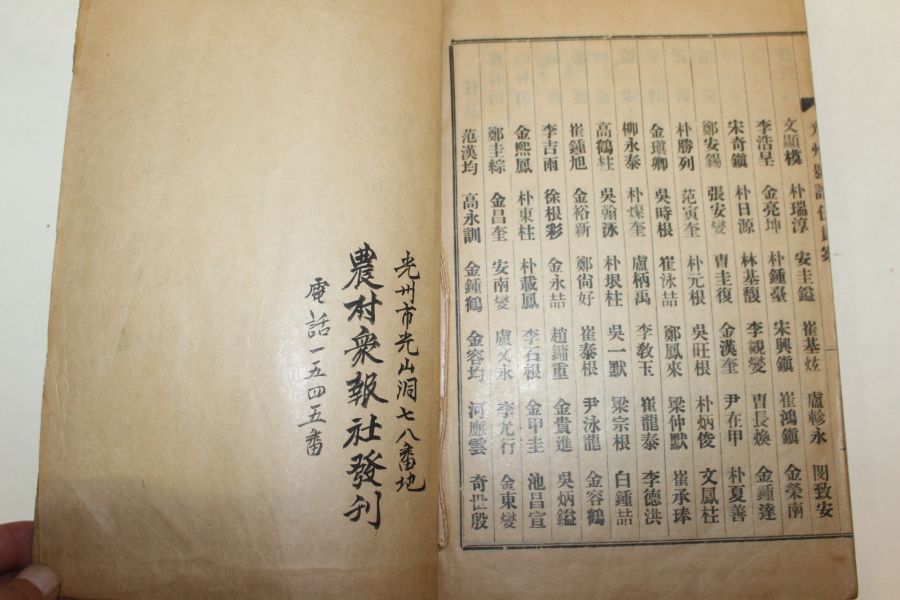 光州縣誌任員案
文顯模 朴瑞淳 安圭鎰 崔基炫 盧軫永 閔致安
李浩呈 金亮坤 朴鍾臺 宋興鎭 崔鴻鎭 金榮南
宋奇鎭 朴日源 林基馥 李觀燮 曺長煥 金鍾達
鄭安錫 張安燮 曺圭復 金漢奎 尹在甲 朴夏善
朴勝列 范寅奎 朴元根 吳旺根 朴炳俊 文鳳柱
金瑱卿 吳時根 崔泳喆 鄭鳳來 梁仲默 崔承琫
柳永泰 朴燦奎 盧柄禹 李敎玉 崔龍泰 李德洪
高鶴柱 吳翰泳 朴垠柱 吳一默 梁宗根 白鍾喆
崔鍾旭 金裕新 鄭尙好 崔泰根 尹泳龍 金容鶴
李吉雨 徐根彩 金永喆 趙鏞重 金貴進 吳炳鎰
金熙鳳 朴東柱 朴載鳳 李石根 金甲圭 池昌宣
鄭圭綜 金昌奎 安南燮 盧文永 李允行 金東燮
范漢均 高永訓 金鍾鶴 金容均 河應雲 奇世殷
光州市光山洞七八番地
農村衆報社發刊
電話一五四五番